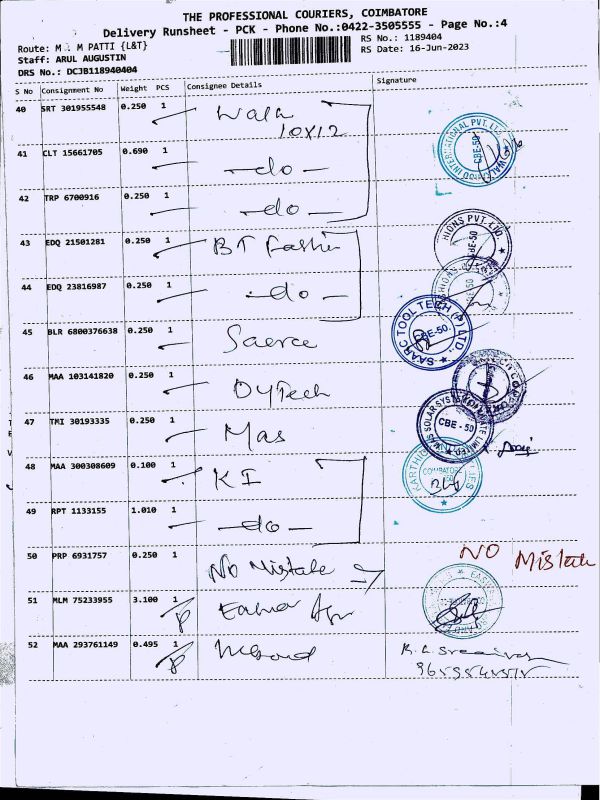 THE PROFESSIONAL COURIERS, COIMBATORE
Delivery Runsheet - PCK - Phone No.:0422-3505555 - Page No.:4
Route: M . M PATTI {L&T}
RS No.: 1189404
Staff: ARUL AUGUSTIN
RS Date: 16-Jun-2023
DRS No.: DCJB118940404
S No Consignment No Weight PCS Consignee Details Signature
40 SRT 301955548 0.250 1
10x12
41 CLT 15661705 0.690 1 -do-
42 TRP 6700916 0.250 1 -do-
43 EDQ 21501281 0.250 1 BT
44 EDQ 23816987 0.250 1 -do-
45 BLR 6800376638 0.250 1 Saerce
SAARC TOOL TECH (P) LTD. CBE-50.
46 MAA 103141820 0.250 1 DyTech
47 TMI 30193335 0.250 1 Mas
SOLAR SYSTEMS PRIVATE LIMITED CBE - 50
48 MAA 300308609 0.100 1 KI
49 RPT 1133155 1.010 1 -do-
50 PRP 6931757 0.250 1 No Mistake NO Mistake
51 MLM 75233955 3.100 1
52 MAA 293761149 0.495 1